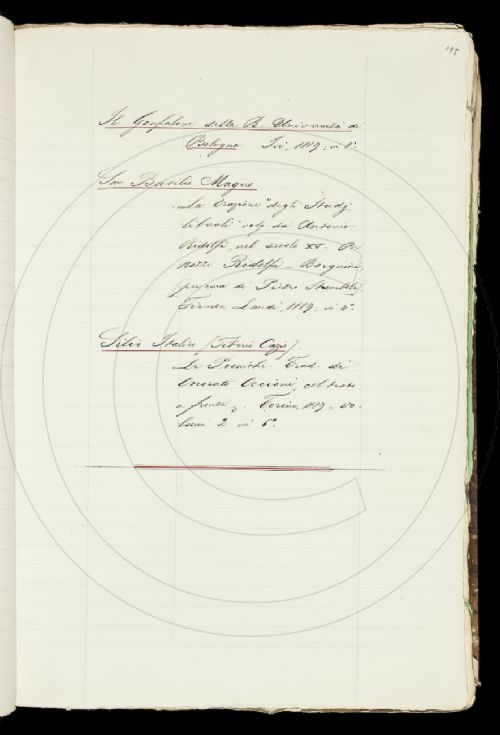 195
Il Gonfalone della R. Università di
Bologna. Ivi, 1889; in 8°.
San Basilio Magno
La Orazione "degli Studj
liberali" volg. da Antonio
Ridolfi, nel secolo XV. Per
nozze Ridolfi - Borgnini,
per cura di Pietro
Firenze, Landi, 1889; in 4°.
Silio Italico (Tiberio Cazio).
Le Puniche. Trad. di
Onorato Occioni, col testo
a fronte. Torino, 1889. Vo-
lumi 2 in 8°.